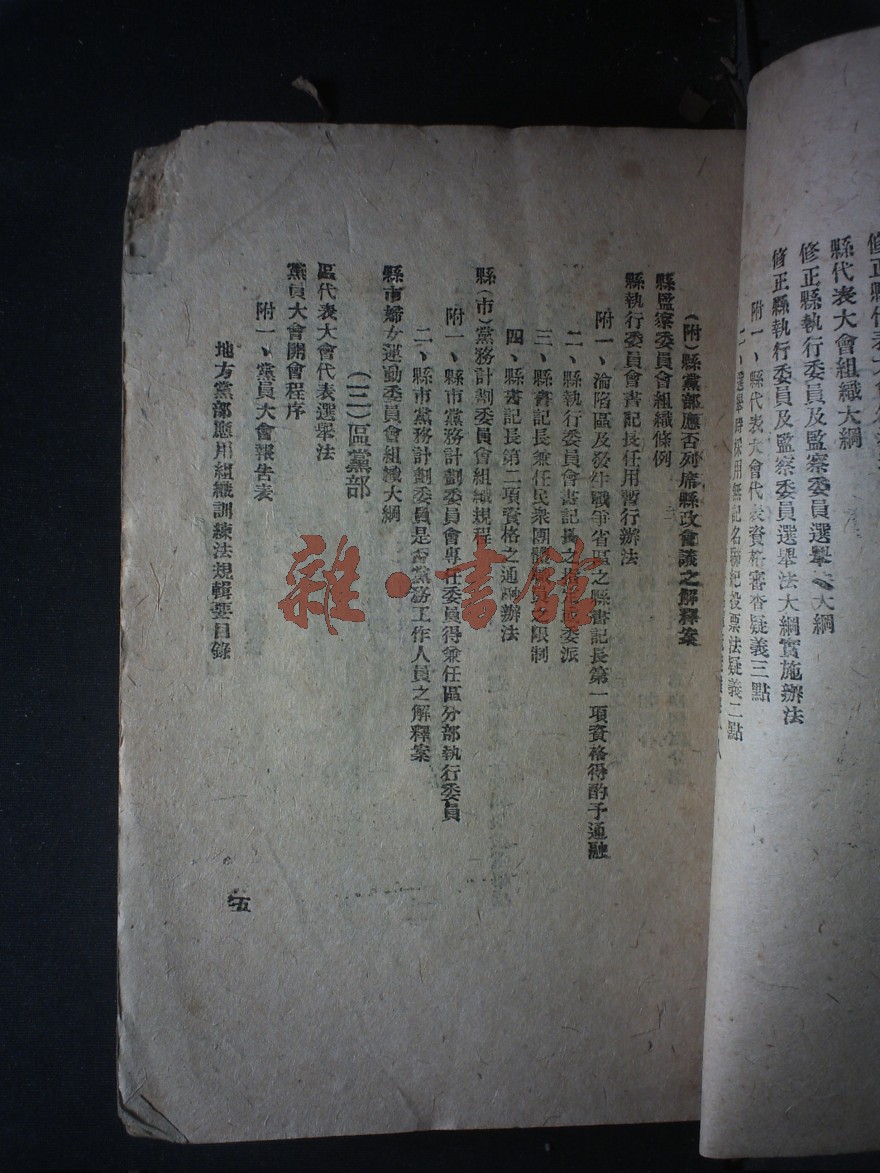 縣代表大會組織大綱
修正縣執行委員及監察委員選舉法大綱
修正縣執行委員及監察委員選舉法大綱實施辦法
附一、縣代表大會代表資格審查疑義三點
選舉時採用無記名聯記投票法疑義二點
(附)縣黨部應否列席縣政會議之解釋案
縣監察委員會組織條例
縣執行委員會書記長任用暫行辦法
附一、淪陷區及發生戰爭省區之縣書記長第一項資格得酌予通融
二、縣執行委員會書記長之
委派
三、縣書記長兼任民衆團體職員之限制
四、縣書記長第二項資格之通融辦法
縣(市)黨務計劃委員會組織規程
附一、縣市黨務計劃委員會專任委員得兼任區分部執行委員
二、縣市黨務計劃委員是否黨務工作人員之解釋案
縣市婦女運動委員會組織大綱
(三)區黨部
區代表大會代表選舉法
黨員大會開會程序
附一、黨員大會報告表
地方黨部應用組織訓練法規輯要目錄
五
雜·書館